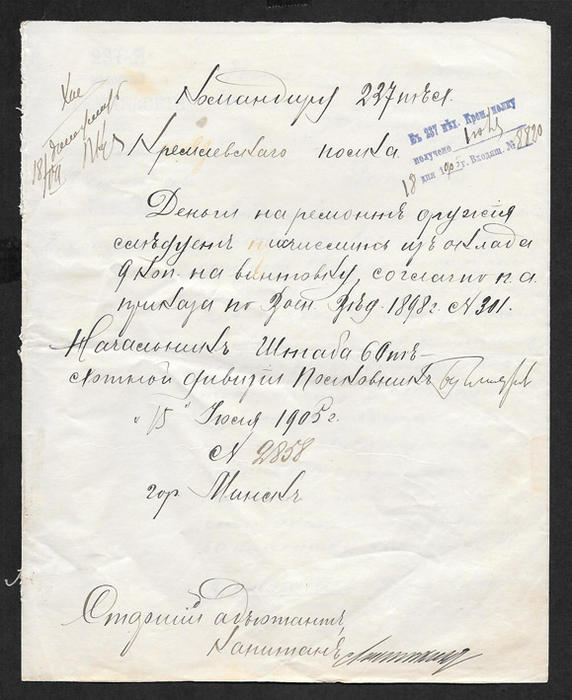 Командиру 237 пѣх.
Кремлевскаго полка
Въ 237 пѣх. Крем. полку
получено Іюля
18 дня 1905г. Входящ. № 8820
18/VII
Деньги на ремонтъ оружія
слѣдуетъ исчислить изъ оклада
9 коп. на винтовку, согласно п. а.
приказа по Воен. Вѣд. 1898 г. № 301.
Начальникъ Штаба 60 пѣ-
хотной дивизіи Полковникъ
„15“ Іюля 1905 г.
№ 2858
гор. Минскъ
Старшій адъютантъ,
Капитанъ